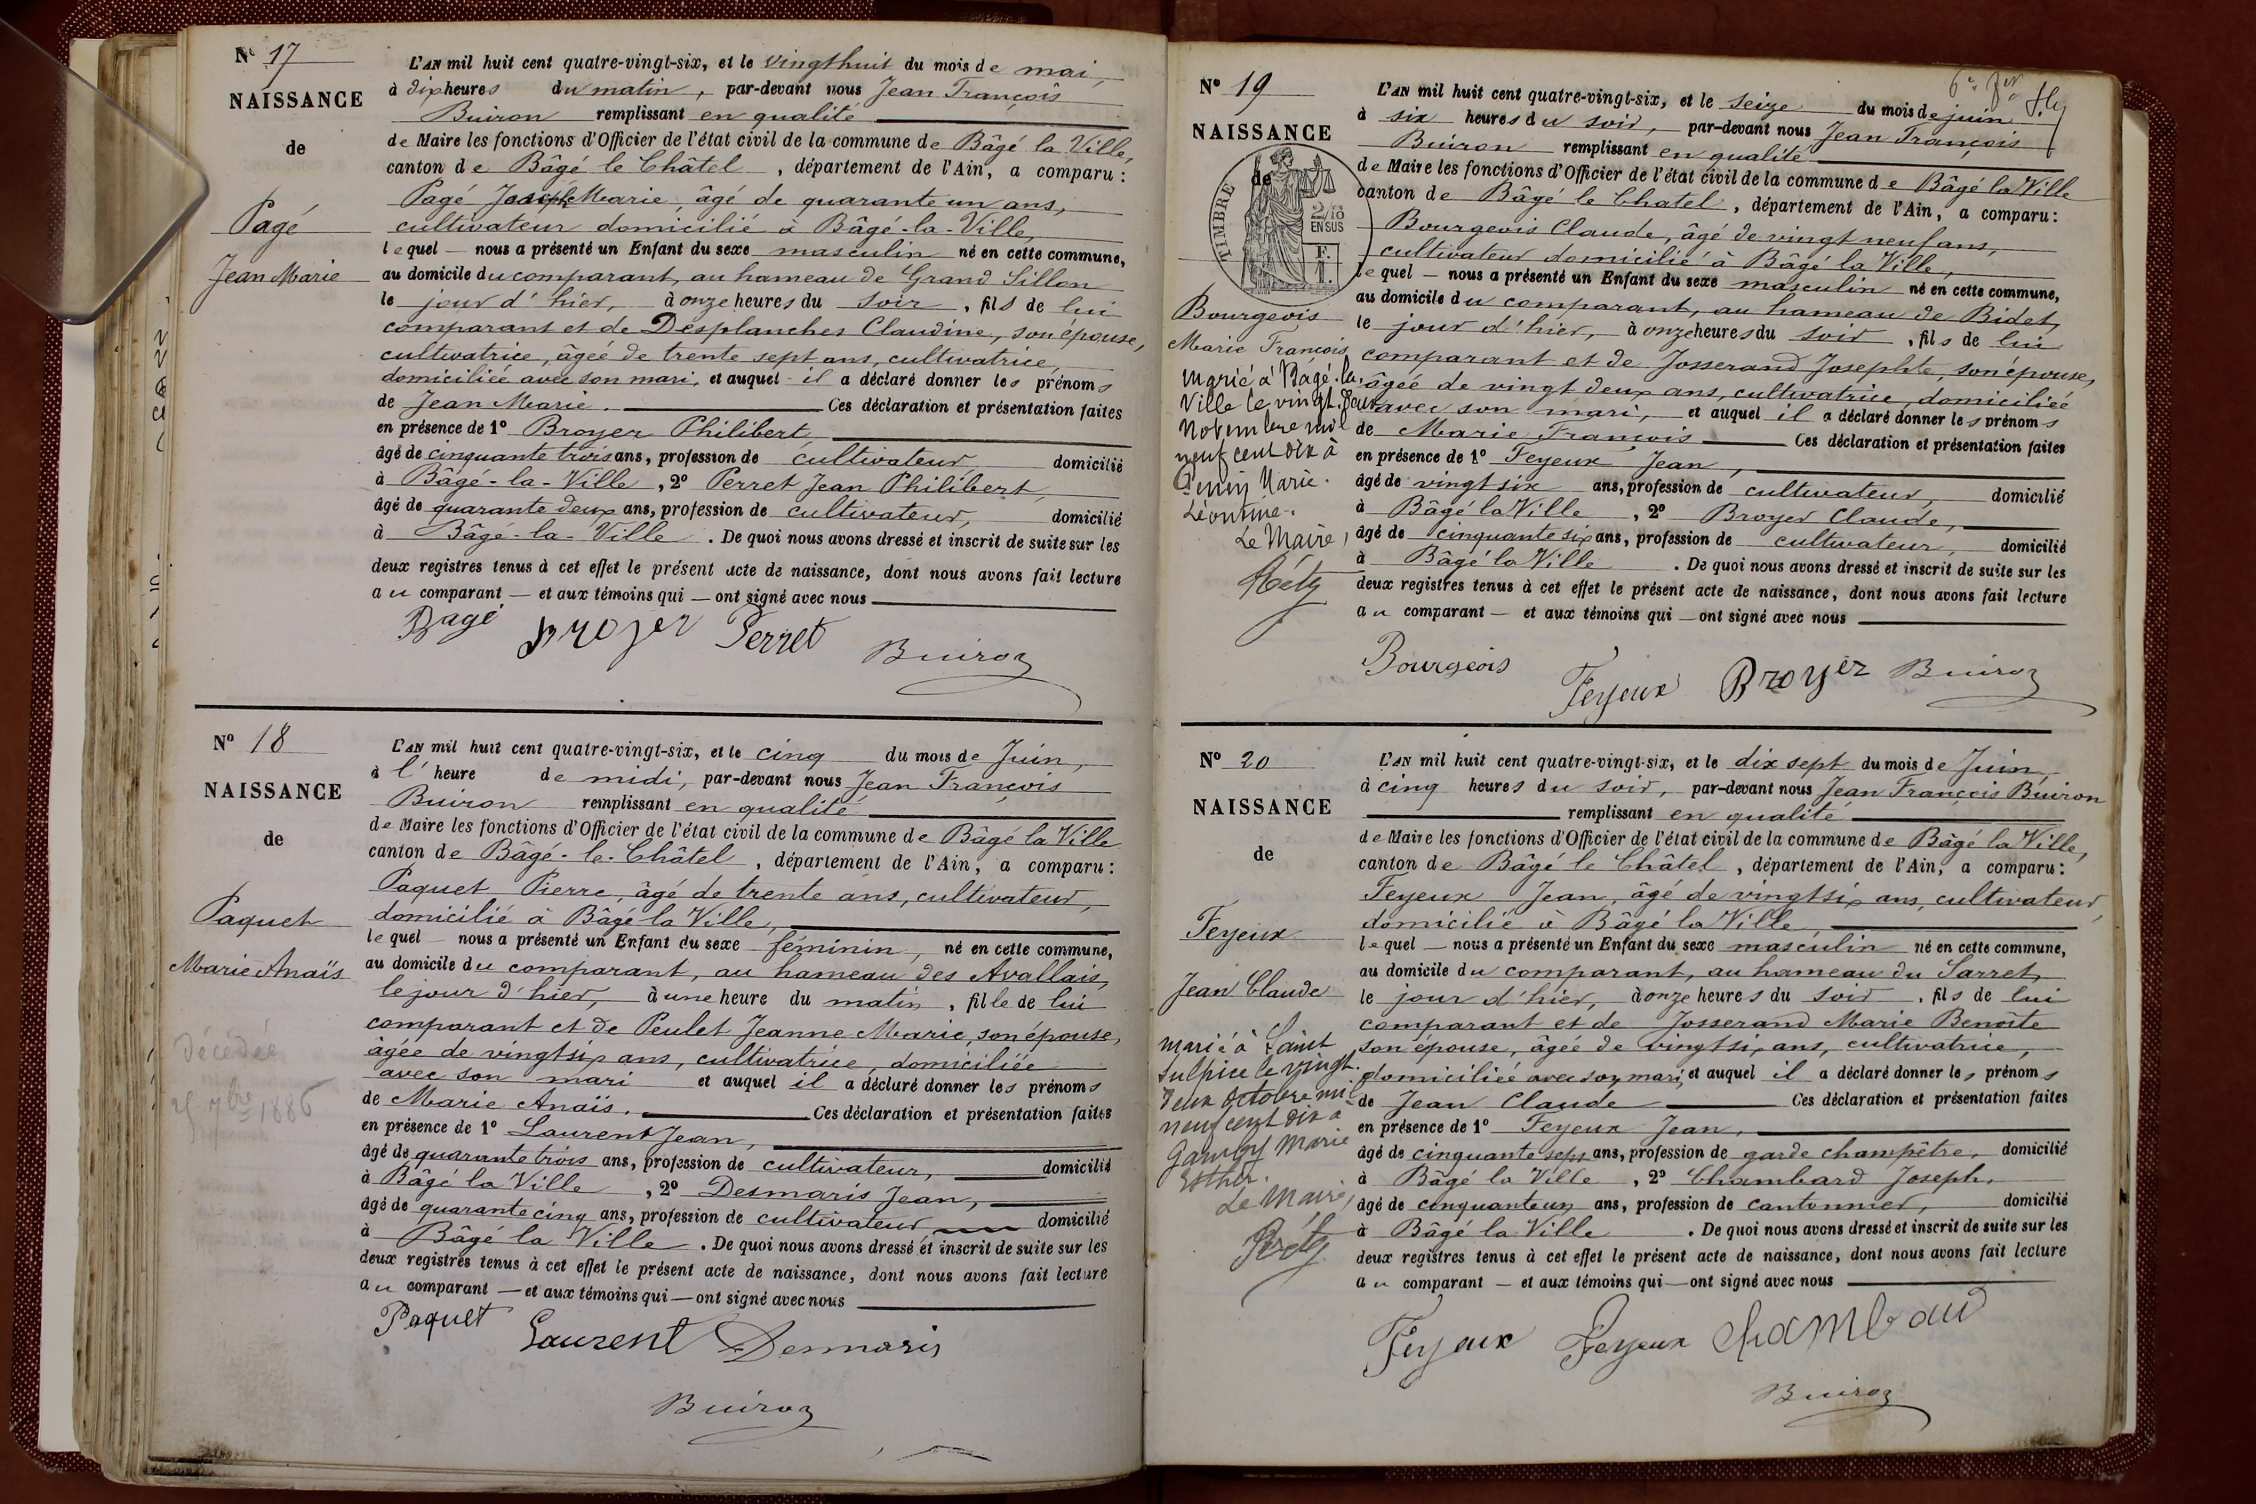 N° 17
NAISSANCE
de
Pagé
Jean Marie
L'AN mil huit cent quatre-vingt-six, et le vingt huit du mois de mai,
à dix heures du matin, par-devant nous Jean François
Buiron remplissant en qualité
de Maire les fonctions d'Officier de l'état civil de la commune de Bâgé la Ville,
canton de Bâgé le Châtel, département de l'Ain, a comparu :
Pagé Joseph Marie, âgé de quarante un ans,
cultivateur domicilié à Bâgé-la-Ville,
lequel nous a présenté un Enfant du sexe masculin né en cette commune,
au domicile du comparant, au hameau de Grand Sillon
le jour d'hier, à onze heures du soir, fils de lui
comparant et de Desplanches Claudine, son épouse,
cultivatrice, âgée de trente sept ans, cultivatrice,
domiciliée avec son mari, et auquel il a déclaré donner les prénoms
de Jean Marie. Ces déclaration et présentation faites
en présence de 1° Broyer Philibert,
âgé de cinquante trois ans, profession de cultivateur domicilié
à Bâgé-la-Ville, 2° Perret Jean Philibert,
âgé de quarante deux ans, profession de cultivateur, domicilié
à Bâgé-la-Ville. De quoi nous avons dressé et inscrit de suite sur les
deux registres tenus à cet effet le présent acte de naissance, dont nous avons fait lecture
au comparant — et aux témoins qui — ont signé avec nous
Pagé Broyer Perret Buiron
N° 18
NAISSANCE
de
Paquet
Marie Anaïs
Décédée
25 7bre 1886
L'AN mil huit cent quatre-vingt-six, et le cinq du mois de Juin,
à l'heure de midi, par-devant nous Jean François
Buiron remplissant en qualité
de Maire les fonctions d'Officier de l'état civil de la commune de Bâgé la Ville
canton de Bâgé-le-Châtel, département de l'Ain, a comparu :
Paquet Pierre, âgé de trente ans, cultivateur,
domicilié à Bâgé la Ville,
lequel nous a présenté un Enfant du sexe féminin, né en cette commune,
au domicile du comparant, au hameau des Avallais,
le jour d'hier, à une heure du matin, fille de lui
comparant et de Peulet Jeanne Marie, son épouse,
âgée de vingt six ans, cultivatrice, domiciliée
avec son mari et auquel il a déclaré donner les prénoms
de Marie Anaïs. Ces déclaration et présentation faites
en présence de 1° Laurent Jean,
âgé de quarante trois ans, profession de cultivateur, domicilié
à Bâgé la Ville, 2° Desmaris Jean,
âgé de quarante cinq ans, profession de cultivateur domicilié
à Bâgé la Ville. De quoi nous avons dressé et inscrit de suite sur les
deux registres tenus à cet effet le présent acte de naissance, dont nous avons fait lecture
au comparant — et aux témoins qui — ont signé avec nous
Paquet Laurent Desmaris
Buiron
N° 19
NAISSANCE
de
TIMBRE
2/10
EN SUS
F.
Bourgeois
Marie François
Marié à Bâgé-la-
Ville le vingt deux
Novembre mil
neuf cent dix à
Marie
Léontine.
Le Maire,
L'AN mil huit cent quatre-vingt-six, et le seize du mois de juin
à six heures du soir, par-devant nous Jean François
Buiron remplissant en qualité
de Maire les fonctions d'Officier de l'état civil de la commune de Bâgé la Ville
canton de Bâgé le Chatel, département de l'Ain, a comparu :
Bourgeois Claude, âgé de vingt neuf ans,
cultivateur domicilié à Bâgé la Ville,
lequel — nous a présenté un Enfant du sexe masculin né en cette commune,
au domicile du comparant, au hameau de Bidet,
le jour d'hier, à onze heures du soir, fils de lui
comparant et de Josserand Josephte, son épouse,
âgée de vingt deux ans, cultivatrice, domiciliée
avec son mari, et auquel il a déclaré donner les prénoms
de Marie François Ces déclaration et présentation faites
en présence de 1° Feyeux Jean,
âgé de vingt six ans, profession de cultivateur, domicilié
à Bâgé la Ville, 2° Broyer Claude,
âgé de cinquante six ans, profession de cultivateur, domicilié
à Bâgé la Ville. De quoi nous avons dressé et inscrit de suite sur les
deux registres tenus à cet effet le présent acte de naissance, dont nous avons fait lecture
au comparant — et aux témoins qui — ont signé avec nous
Bourgeois Feyeux Broyer Buiron
N° 20
NAISSANCE
de
Feyeux
Jean Claude
Marié à Saint
Sulpice le vingt
deux octobre mil
neuf cent dix à
Marie
Esther.
Le Maire,
L'AN mil huit cent quatre-vingt-six, et le dix sept du mois de Juin,
à cinq heures du soir, par-devant nous Jean François Buiron
remplissant en qualité
de Maire les fonctions d'Officier de l'état civil de la commune de Bâgé la Ville,
canton de Bâgé le Châtel, département de l'Ain, a comparu :
Feyeux Jean, âgé de vingt six ans, cultivateur,
domicilié à Bâgé la Ville
lequel — nous a présenté un Enfant du sexe masculin né en cette commune,
au domicile du comparant, au hameau du Sarret,
le jour d'hier, à onze heures du soir, fils de lui
comparant et de Josserand Marie Benoîte
son épouse, âgée de vingt six ans, cultivatrice,
domiciliée avec son mari, et auquel il a déclaré donner les prénoms
de Jean Claude Ces déclaration et présentation faites
en présence de 1° Feyeux Jean,
âgé de cinquante sept ans, profession de garde champêtre, domicilié
à Bâgé la Ville, 2° Chambard Joseph,
âgé de cinquante un ans, profession de cantonnier, domicilié
à Bâgé la Ville. De quoi nous avons dressé et inscrit de suite sur les
deux registres tenus à cet effet le présent acte de naissance, dont nous avons fait lecture
au comparant — et aux témoins qui — ont signé avec nous
Feyeux Feyeux Chambard
Buiron